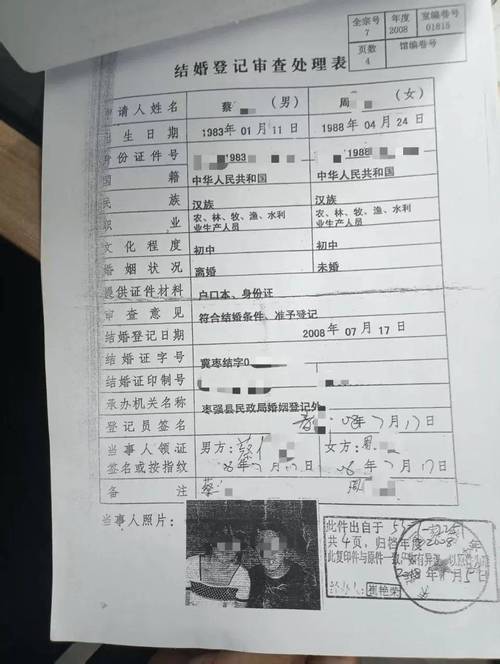 全宗号 年度 室编卷号
7 2008 01815
页数 馆编卷号
4
结婚登记审查处理表
申请人姓名 蔡 (男) 周 (女)
出生日期 1983年 01月 11日 1988年 04月 24日
身份证件号 1983 1988
国籍 中华人民共和国 中华人民共和国
民族 汉族 汉族
职业 农、林、牧、渔、水利业生产人员 农、林、牧、渔、水利业生产人员
文化程度 初中 初中
婚姻状况 离婚 未婚
提供证件材料 户口本、身份证
审查意见 符合结婚条件、准予登记
结婚登记日期 2008年 07月 17日
结婚证字号 冀枣结字0
结婚证印制号
承办机关名称 枣强县民政局婚姻登记处
登记员签名 08年7月17日
当事人领证 男方: 蔡 女方: 周
签名或按指纹 年7月17日 年7月17日
备注 蔡 周
当事人照片:
此件出自于
共4页, 归档年度2008年
此复印件与原件一致
月15日